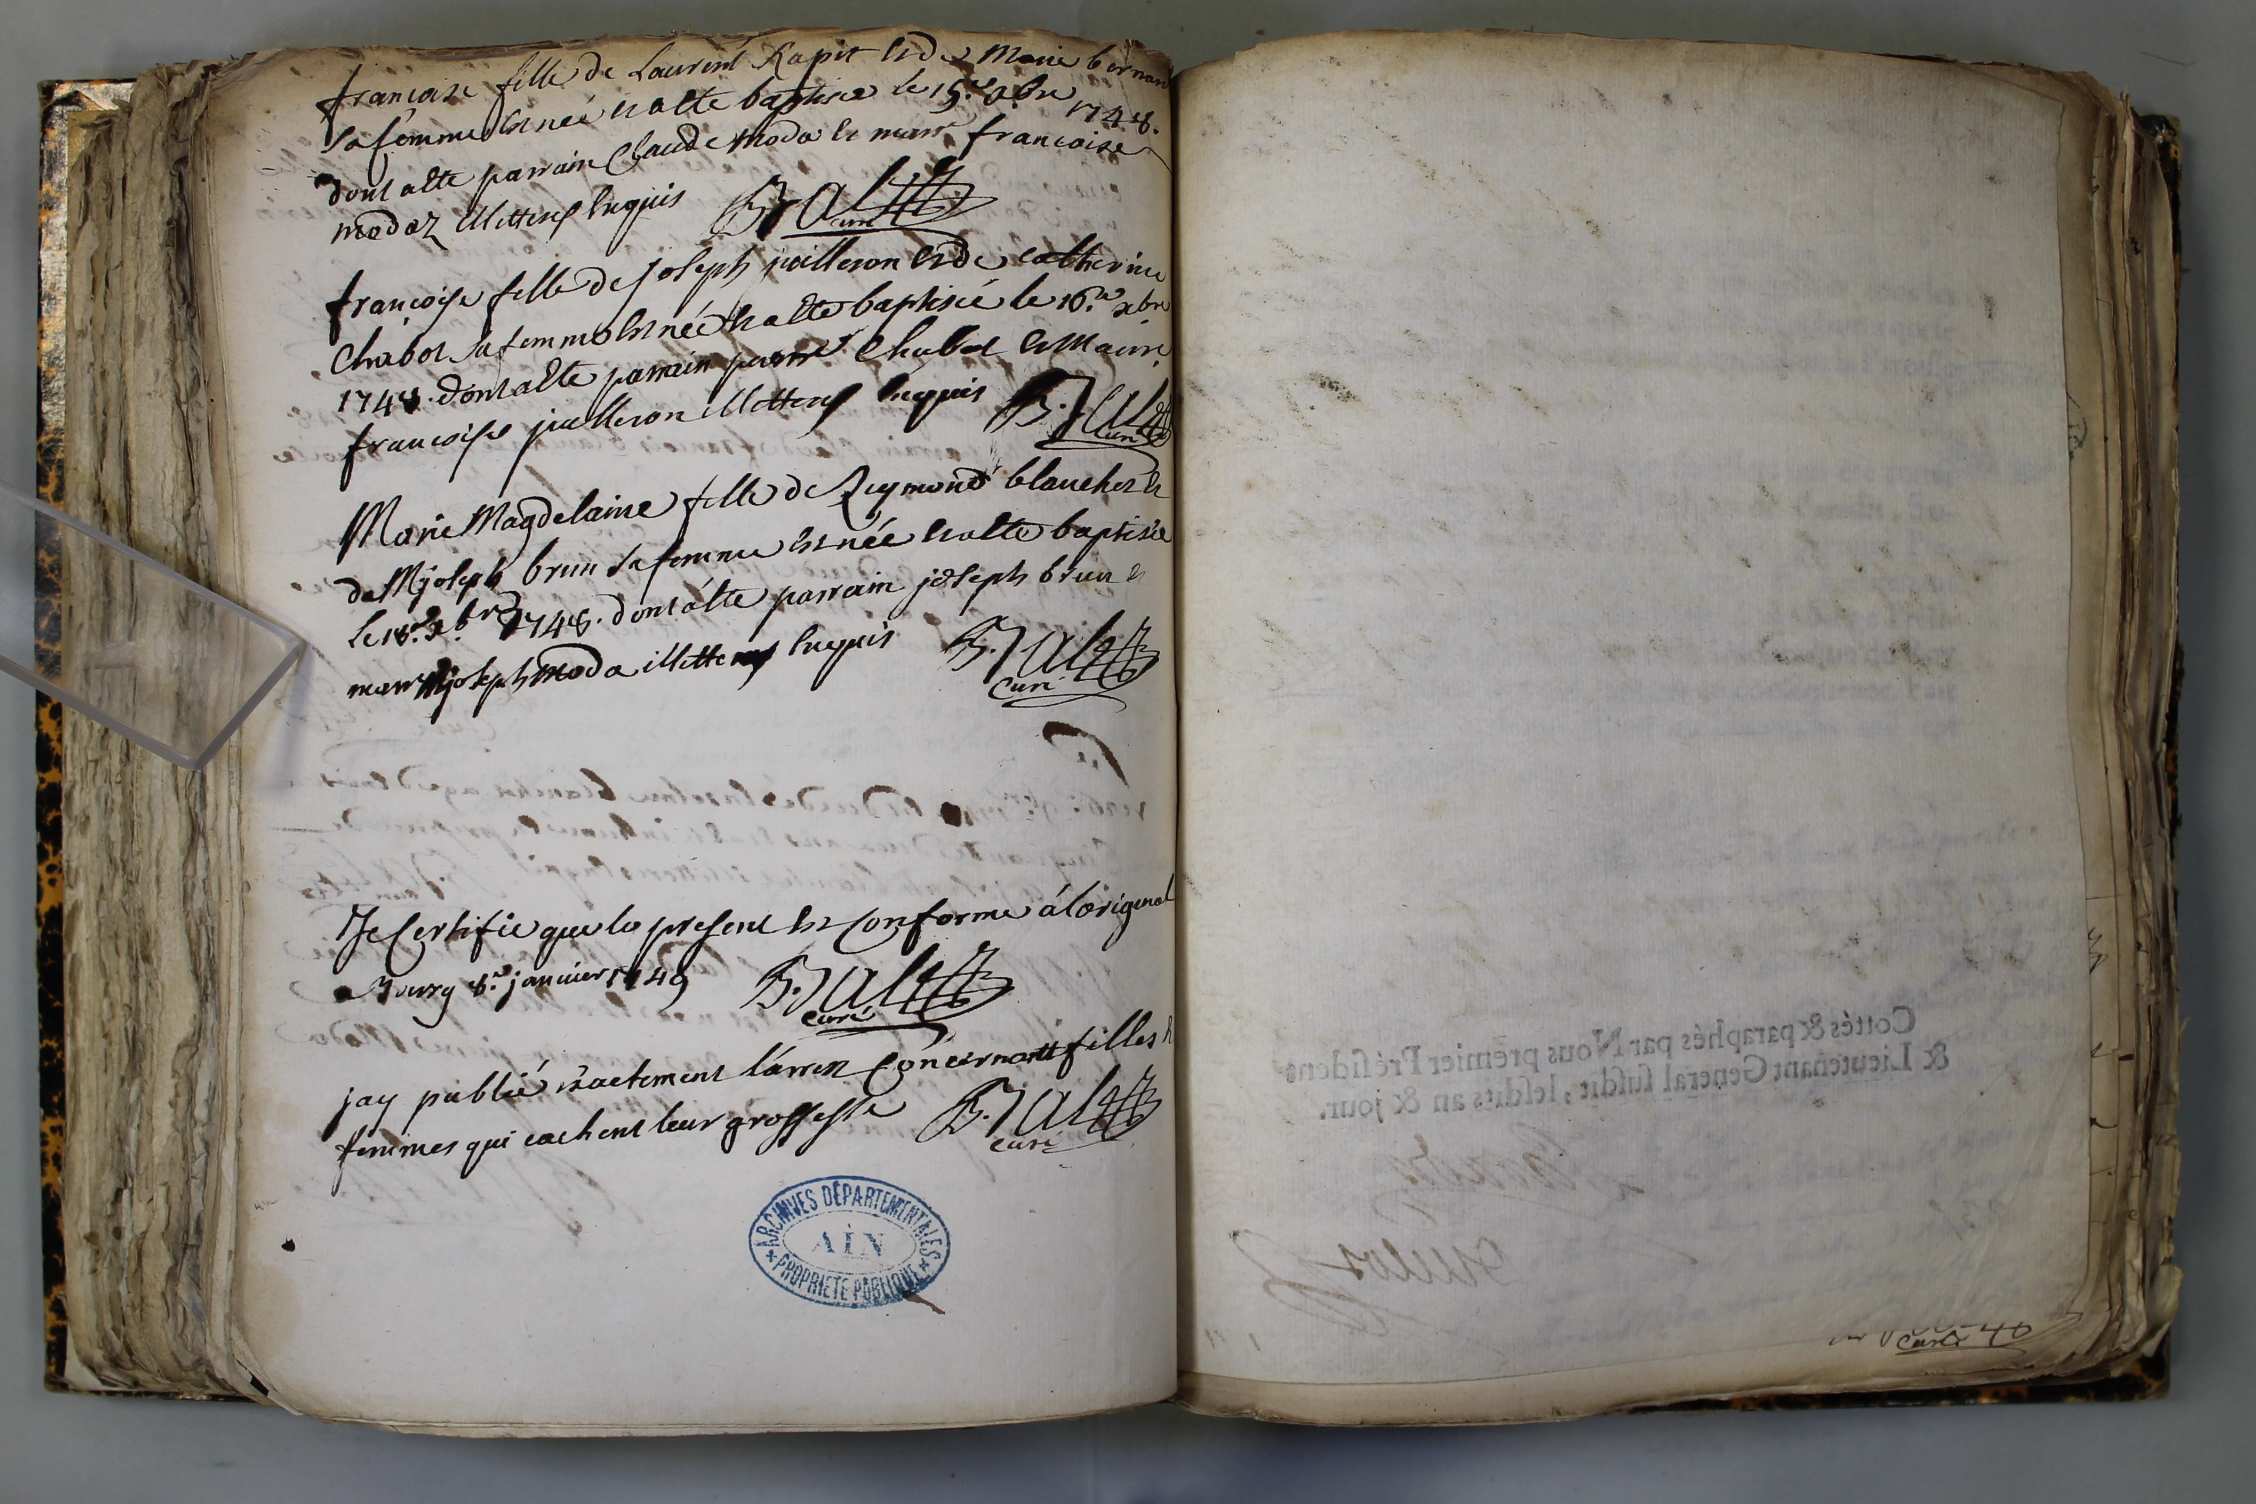 françoise fille de Laurent Rapit et de Marie bernar
sa femme est née et a ette baptisée le 15.e xbre 1748.
dont a ette parrain Claude Moda et marr françoise
modaz illitterés enquis B. Jalet
curé
françoise fille de joseph juilleron et de catherine
Chabot sa femme est née et a ette baptisée le 16.e xbre
1748. dont a ette parrain pierre Chabot et Marre
françoise juilleron illitterés enquis B. Jalet
curé
Marie Magdelaine fille de Reymond blanchet et
de Mjoseph brun sa femme est née et a ette baptisée
le 18.e xbre 1748. dont a ette parrain joseph brun et
marr Mjoseph Moda illitterés enquis B. Jalet
Curé
Je Certifie que le present est Conforme a l'original
a Bourg 8.e janvier 1749 B. Jalet
curé
jay publié exactement l'arrest Concernant filles et
femmes qui cachent leur grossesse B. Jalet
curé
ARCHIVES DÉPARTEMENTALES
AIN
PROPRIÉTÉ PUBLIQUE
Cottés & paraphés par Nous premier Président
& Lieutenant General susdit, lesdits an & jour.
Curé